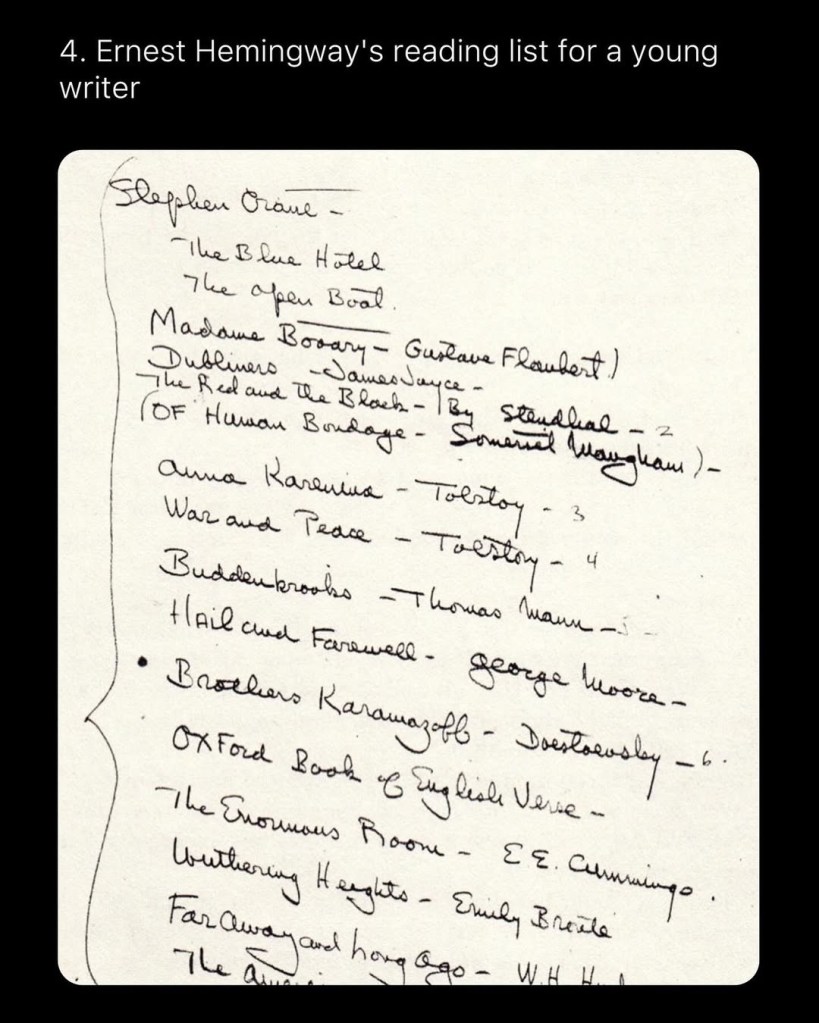 4. Ernest Hemingway's reading list for a young
writer
Stephen Crane -
The Blue Hotel
The open Boat.
Madame Bovary - Gustave Flaubert)
Dubliners - James Joyce -
The Red and the Black - By Stendhal - 2
(OF Human Bondage - Somerset Maugham) -
Anna Karenina - Tolstoy - 3
War and Peace - Tolstoy - 4
Buddenbrooks - Thomas Mann - 5 -
Hail and Farewell - George Moore -
Brothers Karamazoff - Doestoevsky - 6.
OXFord Book of English Verse -
The Enormous Room - E E. Cummings.
Wuthering Heights - Emily Bronte
Far Away and Long Ago - W.H.
The